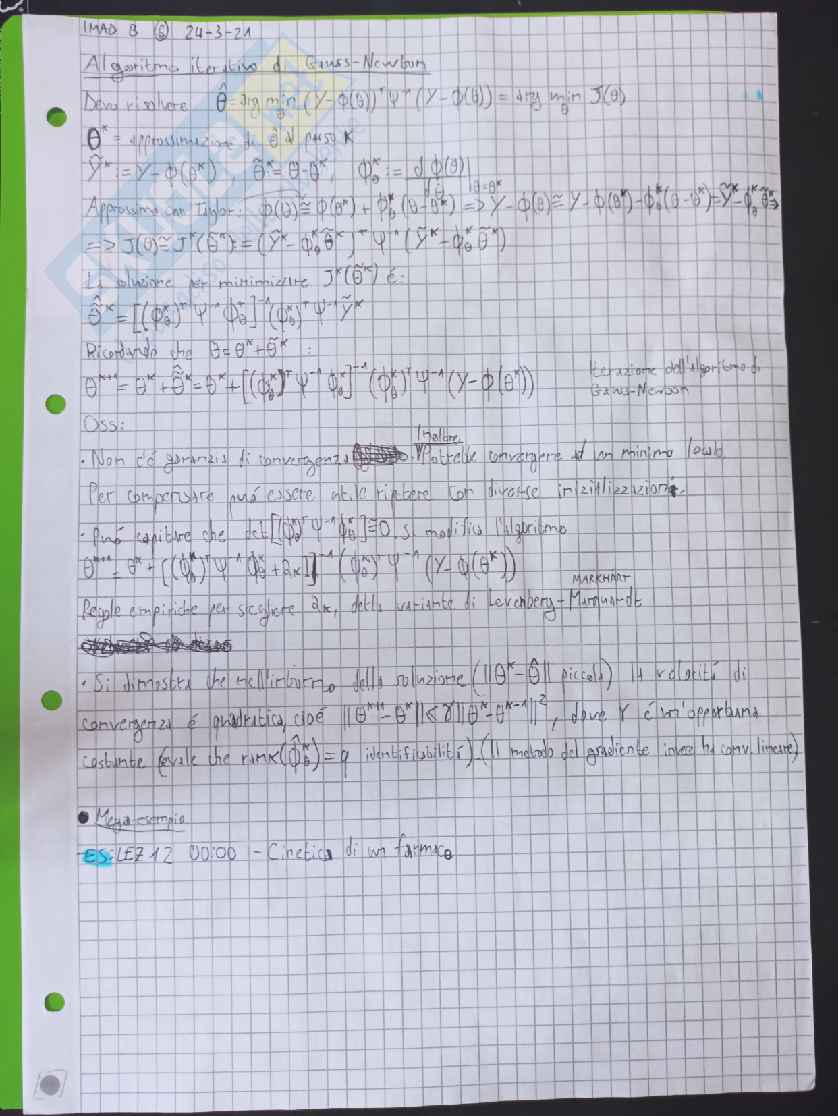 IMAD B ⑥ 24-3-21
Algoritmo iterativo di Gauss-Newton
Devo risolvere θ̂ = arg min_θ (Y-ϕ(θ))ᵀ Ψ⁻¹ (Y-ϕ(θ)) = arg min_θ J(θ)
θᵏ = approssimazione di θ̂ al passo K
Ỹᵏ := Y-ϕ(θᵏ) θ̃ᵏ = θ-θᵏ, ϕ_θᵏ := dϕ(θ)/dθ |θ=θᵏ
Approssimo con Taylor: ϕ(θ) ≅ ϕ(θᵏ) + ϕ_θᵏ (θ-θᵏ) => Y-ϕ(θ) ≅ Y-ϕ(θᵏ)-ϕ_θᵏ(θ-θᵏ) = Ỹᵏ-ϕ_θᵏ θ̃ᵏ =>
=> J(θ) ≅ Jᵏ(θ̃ᵏ) = (Ỹᵏ-ϕ_θᵏ θ̃ᵏ)ᵀ Ψ⁻¹ (Ỹᵏ-ϕ_θᵏ θ̃ᵏ)
La soluzione per minimizzare Jᵏ(θ̃ᵏ) é:
θ̃̂ᵏ = [(ϕ_θᵏ)ᵀ Ψ⁻¹ ϕ_θᵏ]⁻¹ (ϕ_θᵏ)ᵀ Ψ⁻¹ Ỹᵏ
Ricordando che θ = θᵏ + θ̃ᵏ :
θᵏ⁺¹ = θᵏ + θ̃̂ᵏ = θᵏ + [(ϕ_θᵏ)ᵀ Ψ⁻¹ ϕ_θᵏ]⁻¹ (ϕ_θᵏ)ᵀ Ψ⁻¹ (Y-ϕ(θᵏ)) Iterazione dell'algoritmo di
Gauss-Newton
Oss:
· Non c'é garanzia di convergenza. Inoltre, Potrebbe convergere ad un minimo locale
Per compensare puó essere utile ripetere con diverse inizializzazioni.
· Puó capitare che det[(ϕ_θᵏ)ᵀ Ψ⁻¹ ϕ_θᵏ] ≅ 0, si modifica l'algoritmo
θᵏ⁺¹ = θᵏ + [(ϕ_θᵏ)ᵀ Ψ⁻¹ ϕ_θᵏ + λₖ I]⁻¹ (ϕ_θᵏ)ᵀ Ψ⁻¹ (Y-ϕ(θᵏ))
MARKHART
Regole empiriche per scegliere λₖ, detta variante di Levenberg-Marquardt
· Si dimostra che nell'intorno della soluzione (||θᵏ-θ̂|| piccola) la velocitá di
convergenza é quadratica, cioé ||θᵏ⁺¹-θᵏ|| < γ||θᵏ-θᵏ⁻¹||², dove γ é un'opportuna
costante (vale che rank(ϕ̂_θᵏ) = q identificabilitá). (Il metodo del gradiente invece ha conv. lineare)
● Mega esempio
ES: LEZ 12 00:00 - Cinetica di un farmaco